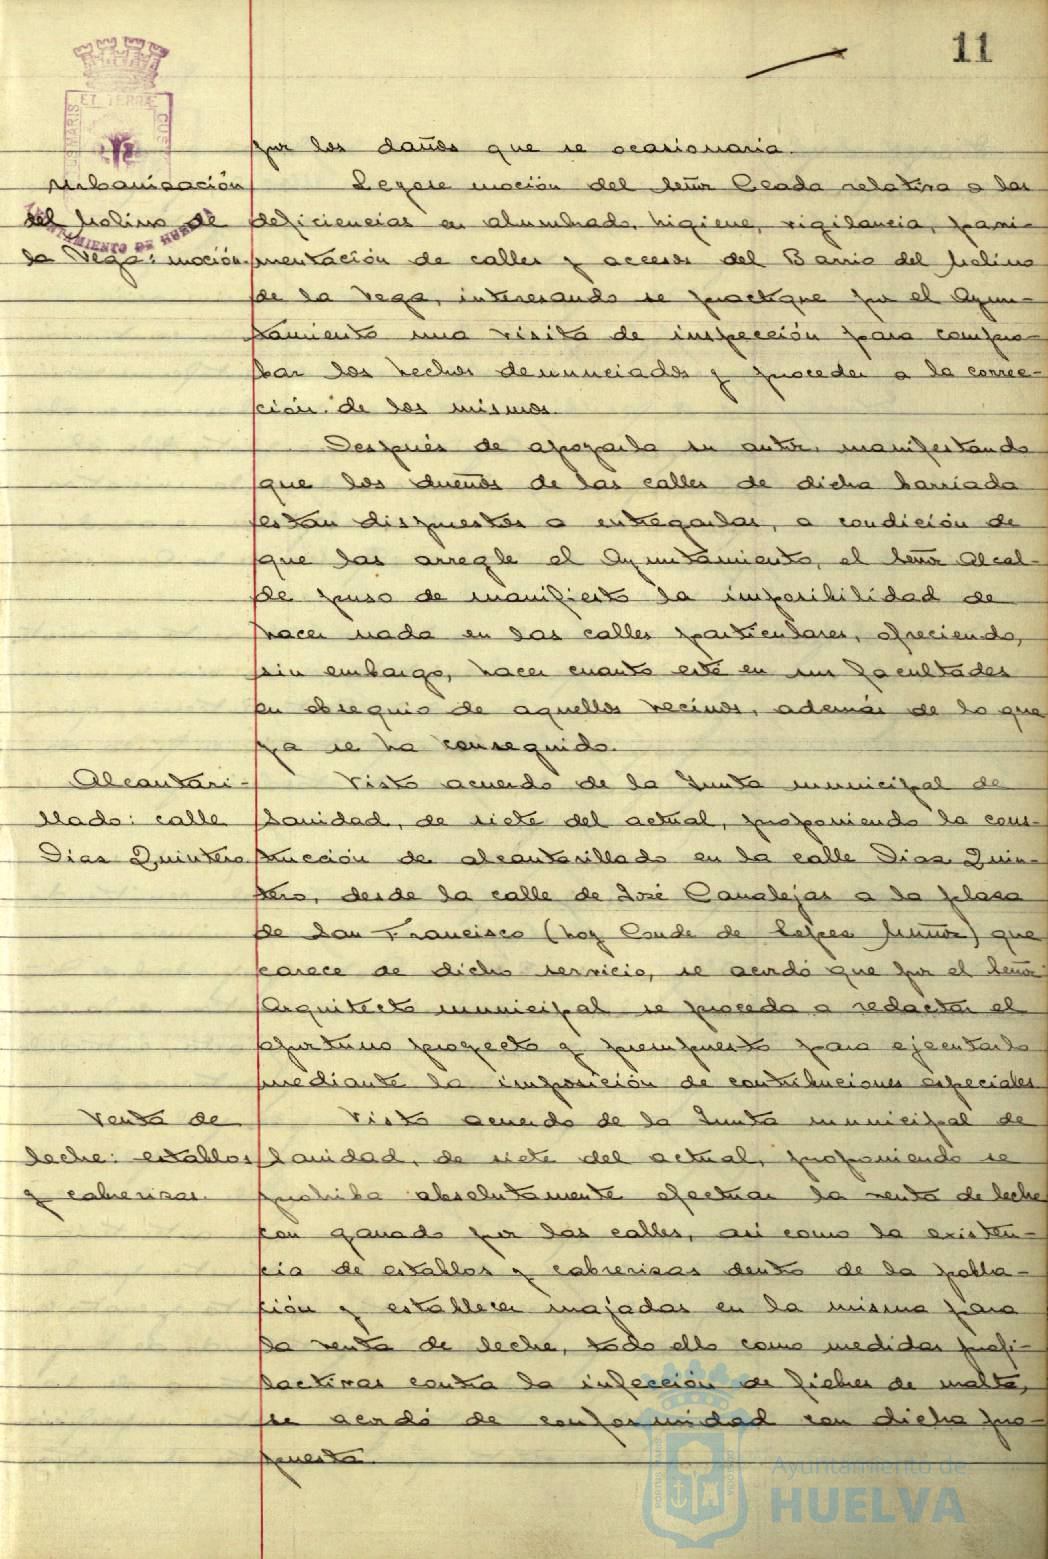 11
por los daños que se ocasionaria.
Urbanización
del Molino de
la Vega: moción.
Leyose moción del Señor Ceada relativa a las
deficiencias en alumbrado, higiene, vigilancia, pavi-
mentación de calles y accesos del Barrio del Molino
de la Vega, interesando se practique por el Ayun-
tamiento una visita de inspección para compro-
bar los hechos denunciados y proceder a la correc-
ción de los mismos.
Después de apoyarla su autor, manifestando
que los dueños de las calles de dicha barriada
están dispuestos a entregarlas, a condición de
que las arregle el Ayuntamiento, el Señor Alcal-
de puso de manifiesto la imposibilidad de
hacer nada en las calles particulares, ofreciendo,
sin embargo, hacer cuanto esté en sus facultades
en obsequio de aquellos vecinos, además de lo que
ya se ha conseguido.
Alcantari-
llado: calle
Dias Quintero
Visto acuerdo de la Junta municipal de
Sanidad, de siete del actual, proponiendo la cons-
trucción de alcantarillado en la calle Dias Quin-
tero, desde la calle de José Canalejas a la plaza
de San Francisco (hoy Conde de Lopez Muñoz) que
carece de dicho servicio, se acordó que por el Señor
Arquitecto municipal se proceda a redactar el
oportuno proyecto y presupuesto para ejecutarlo
mediante la imposición de contribuciones especiales
Venta de
leche: establos
y cabrerizas.
Visto acuerdo de la Junta municipal de
Sanidad, de siete del actual, proponiendo se
prohiba absolutamente efectuar la venta de leche
con ganado por las calles, asi como la existen-
cia de establos y cabrerizas dentro de la pobla-
ción y establecer majadas en la misma para
la venta de leche, todo ello como medidas profi-
lacticas contra la infección de fiebres de malta,
se acordó de conformidad con dicha pro-
puesta.
Ayuntamiento de
HUELVA